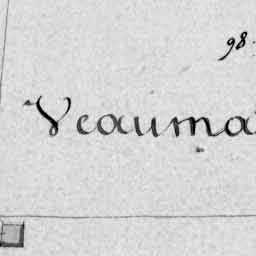 98.
Veauma